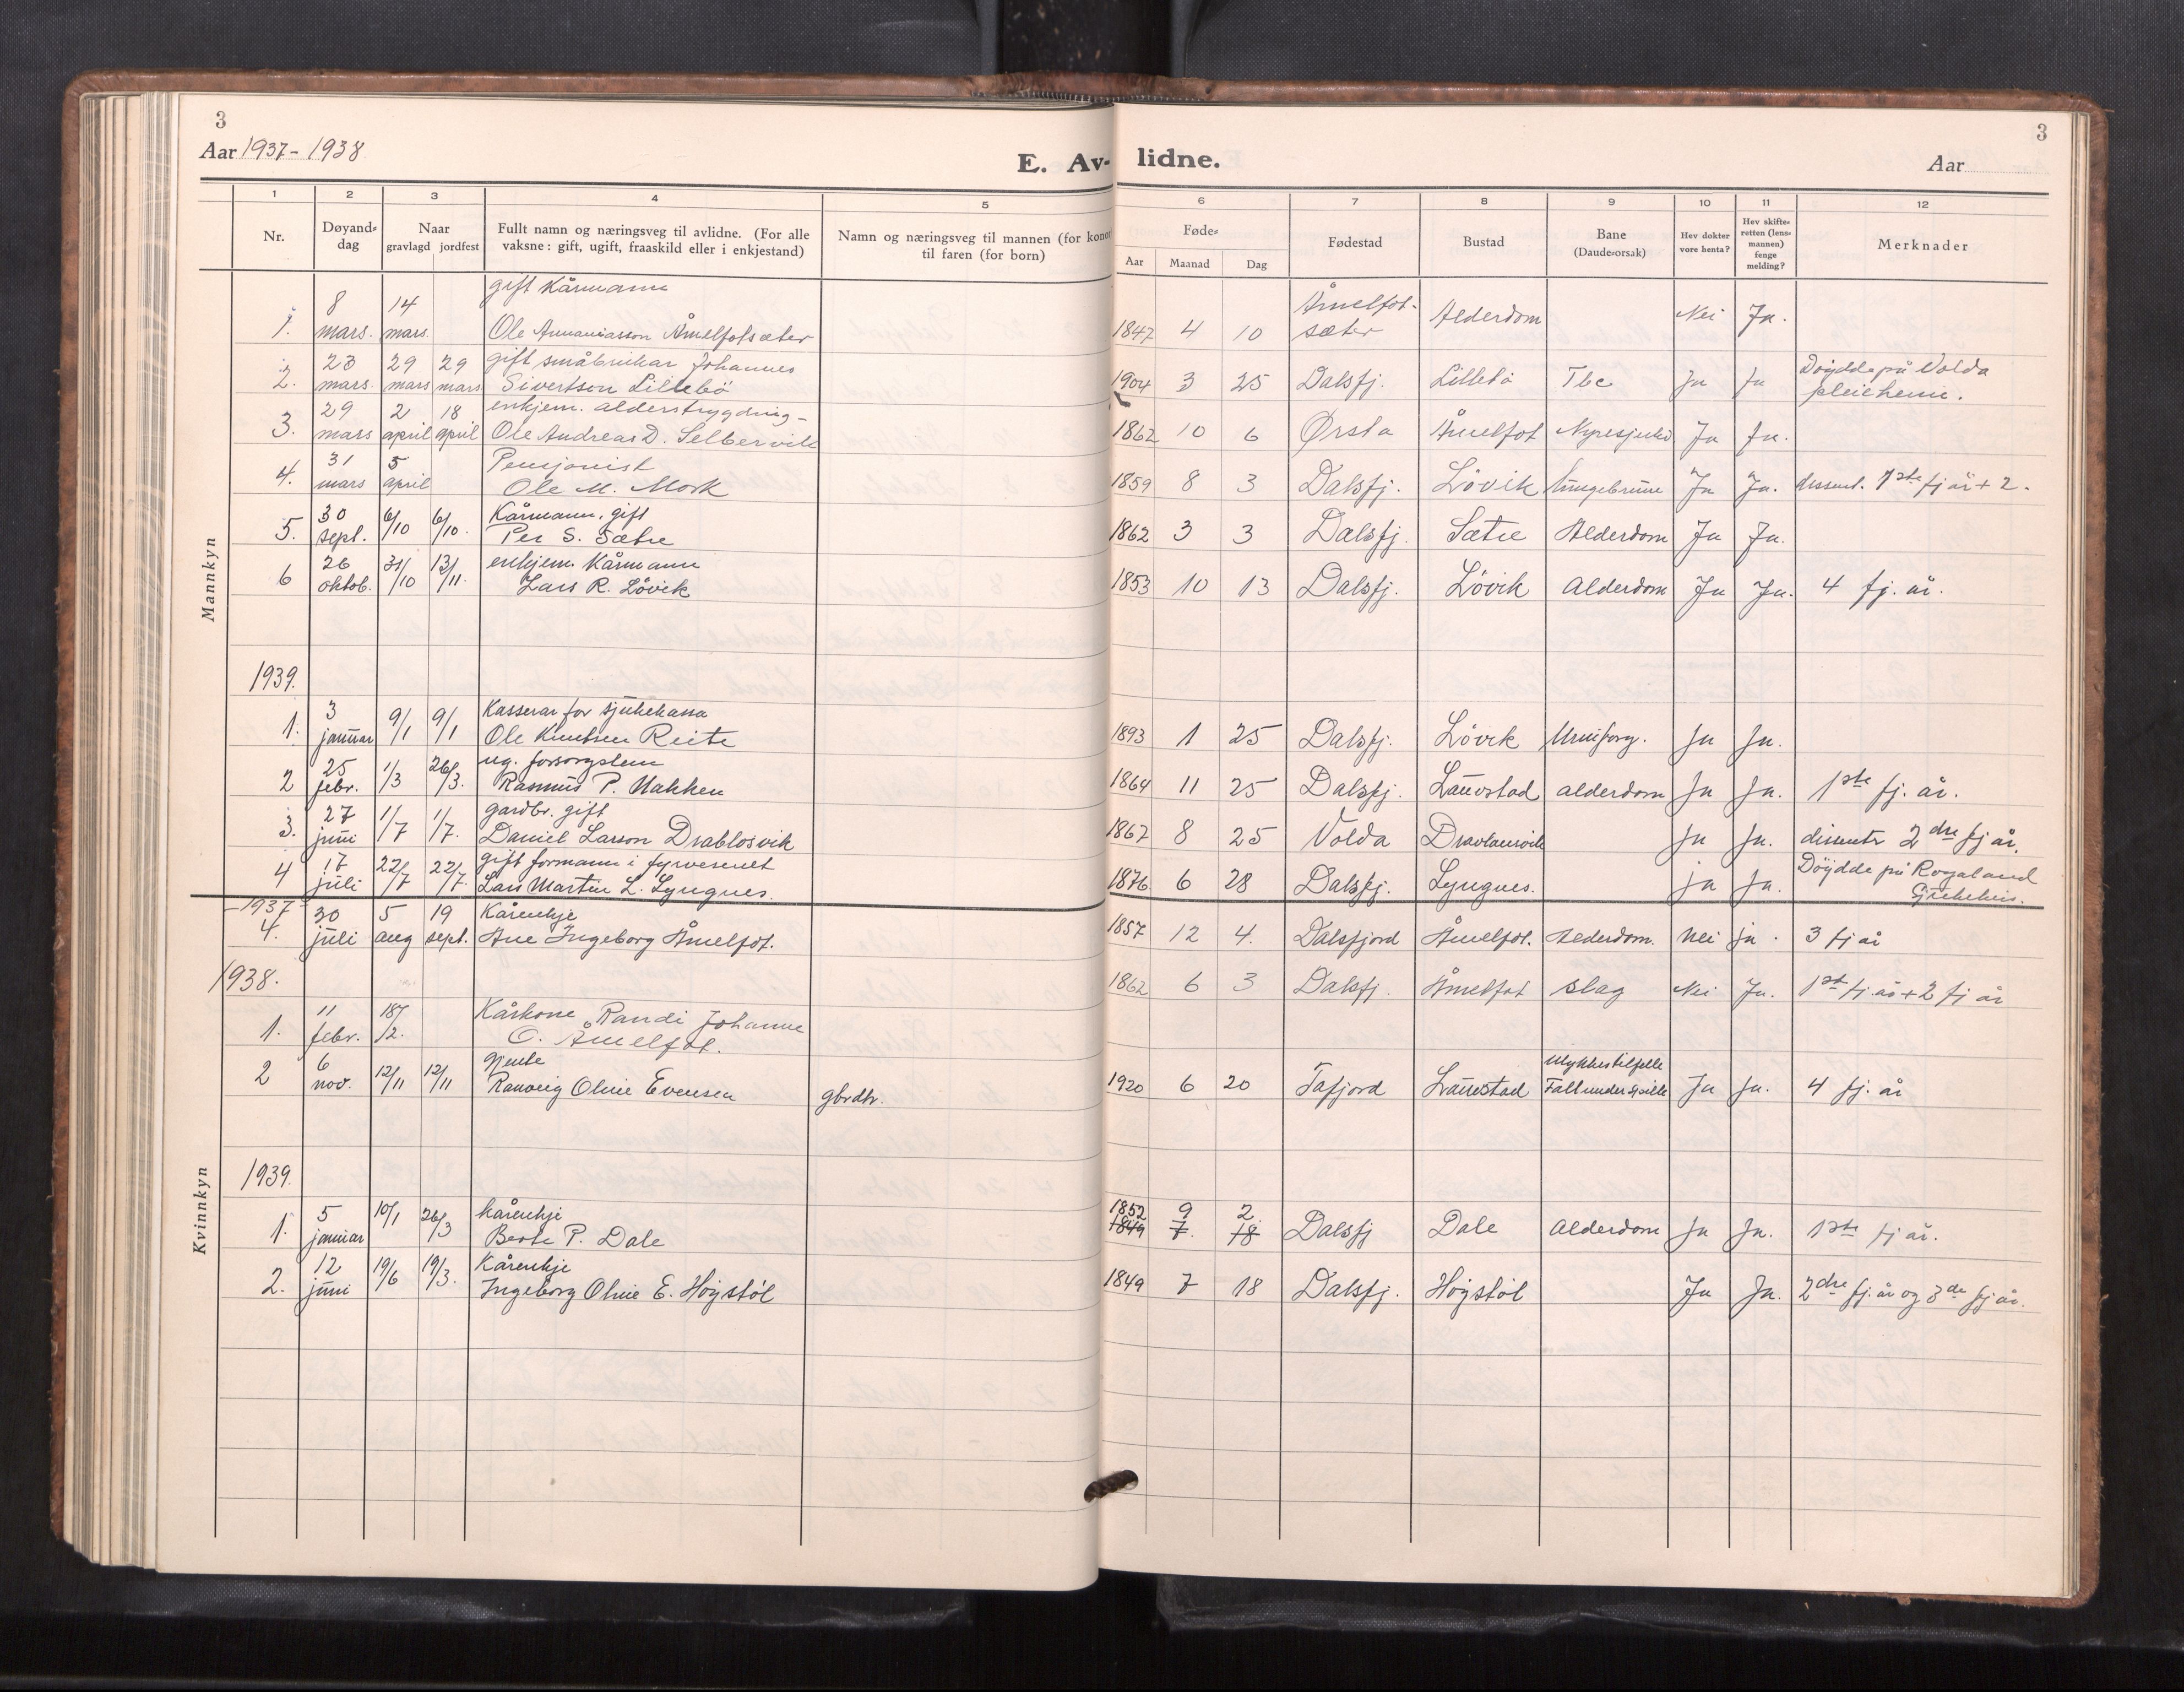 3
3
Aar 1937-1938
E. Av-
lidne.
Aar
1 2 3 4 5 6 7 8 9 10 11 12
Nr.
Døyand-
dag
Naar
gravlagd jordfest
Fullt namn og næringsveg til avlidne. (For alle
vaksne: gift, ugift, fraaskild eller i enkjestand)
Namn og næringsveg til mannen (for konor
til faren (for born)
Føde-
Aar Maanad Dag
Fødestad
Bustad
Bane
(Daude-orsak)
Hev dokter
vore henta?
Hev skifte-
retten (lens-
mannen)
fenge
melding?
Merknader
Mannkyn
8 14 gift Kårmann Åmelfot-
1. mars. mars. Ole Ananiasson Åmelfotsæter 1847 4 10 sæter Alderdom Nei Ja.
23 29 29 gift småbrukar Johannes Döydde på Volda
2. mars. mars mars Sivertson Lillebö 1904 3 25 Dalsfj. Lillebö Tbc Ja Ja pleieheim.
29 2 18 enkjem. alderstrygding-
3. mars april april Ole Andreas D. Selbervik 1862 10 6 Ørsta Åmelfot Nyresjukd Ja Ja.
31 5 Pensjonist
4. mars april Ole M. Mork 1859 8 3 Dalsfj. Lövik Lungebrune Ja Ja. dissent. 1ste fj år + 2.
30 6/10 6/10. Kårmann, gift
5. sept. Per S. Sætre 1862 3 3 Dalsfj. Sætre Alderdom Ja Ja.
26 31/10 13/11. enkjem. Kårmann
6 oktob. Lars R. Lövik 1853 10 13 Dalsfj. Lövik Alderdom Ja Ja. 4 fj. år.
1939.
3 9/1 9/1 Kasserar for sjukekassa
1. januar Ole Knutsen Reite 1893 1 25 Dalsfj. Lövik Ja Ja.
25 1/3 26/3. ug. forsorgslem
2 febr. Rasmus P. Nakken 1864 11 25 Dalsfj. Lauvstad alderdom Ja Ja. 1ste fj. år.
27 1/7 1/7. gardbr. gift
3. juni Daniel Larson Drablosvik 1867 8 25 Volda Dravlausvik Ja Ja. dissenter 2dre fj år.
17 22/7 22/7. gift formann i fyrvesenet Döydde på Rogaland
4 juli Lars Martin L. Lyngnes. 1876 6 28 Dalsfj. Lyngnes. ja Ja. Sjukeheim.
Kvinnkyn
-1937-
30 5 19 Kårenkje
4. juli aug sept. Ane Ingeborg Åmelfot. 1857 12 4. Dalsfjord Åmelfot. Alderdom. Nei ja. 3 fj år
1938. 1862 6 3 Dalsfj. Åmelfot slag Nei Ja. 1ste fj. år + 2 fj år
11 18/2. Kårkone Randi Johanne
1. febr. O. Åmelfot.
6 12/11 12/11 gjente Ulykkestilfelle
2 nov. Ranveig Oline Evensen gbrdtr. 1920 6 20 Tafjord Lauvstad Fall under spille Ja Ja. 4 fj. år
1939.
5 10/1 26/3 kårenkje 1852 9 2
1. januar Berte P. Dale 1849 7. 18 Dalsfj Dale Alderdom Ja Ja. 1ste fj år.
12 19/6 19/3. Kårenkje
2. juni Ingeborg Oline E. Högstöl 1849 7 18 Dalsfj. Högstöl Ja Ja. 2dre fj. år og 3de fj år.